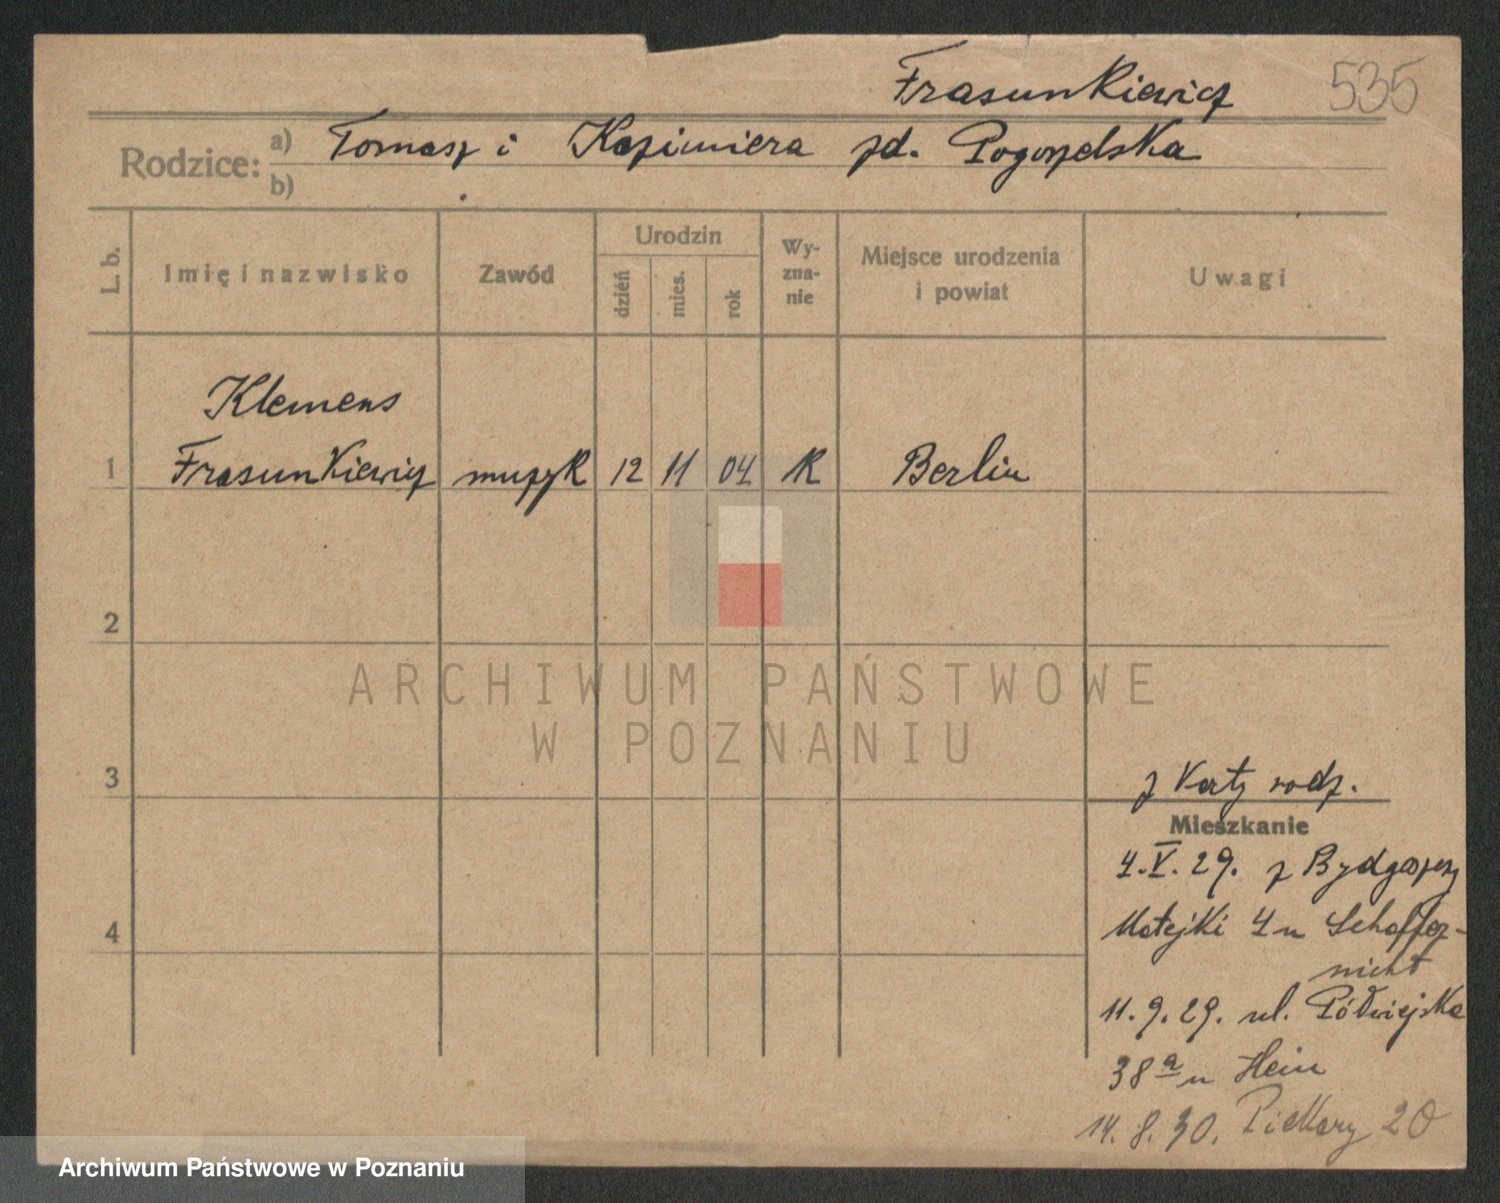 Frasunkiewicz 535
Rodzice: a) Tomasz i Kazimiera zd. Pogorzelska
b)
L. b. Imię i nazwisko Zawód Urodzin dzień mies. rok Wy-zna-nie Miejsce urodzenia i powiat Uwagi
Klemens
1 Frasunkiewicz muzyk 12 11 04 K Berlin
2
ARCHIWUM PAŃSTWOWE
W POZNANIU
3
z Karty rodz.
Mieszkanie
4.V.29. z Bydgoszczy
4
Matejki 4 u
11.9.29. ul. Półwiejska
38a u Hein
14.8.30. Piekary 20
Archiwum Państwowe w Poznaniu